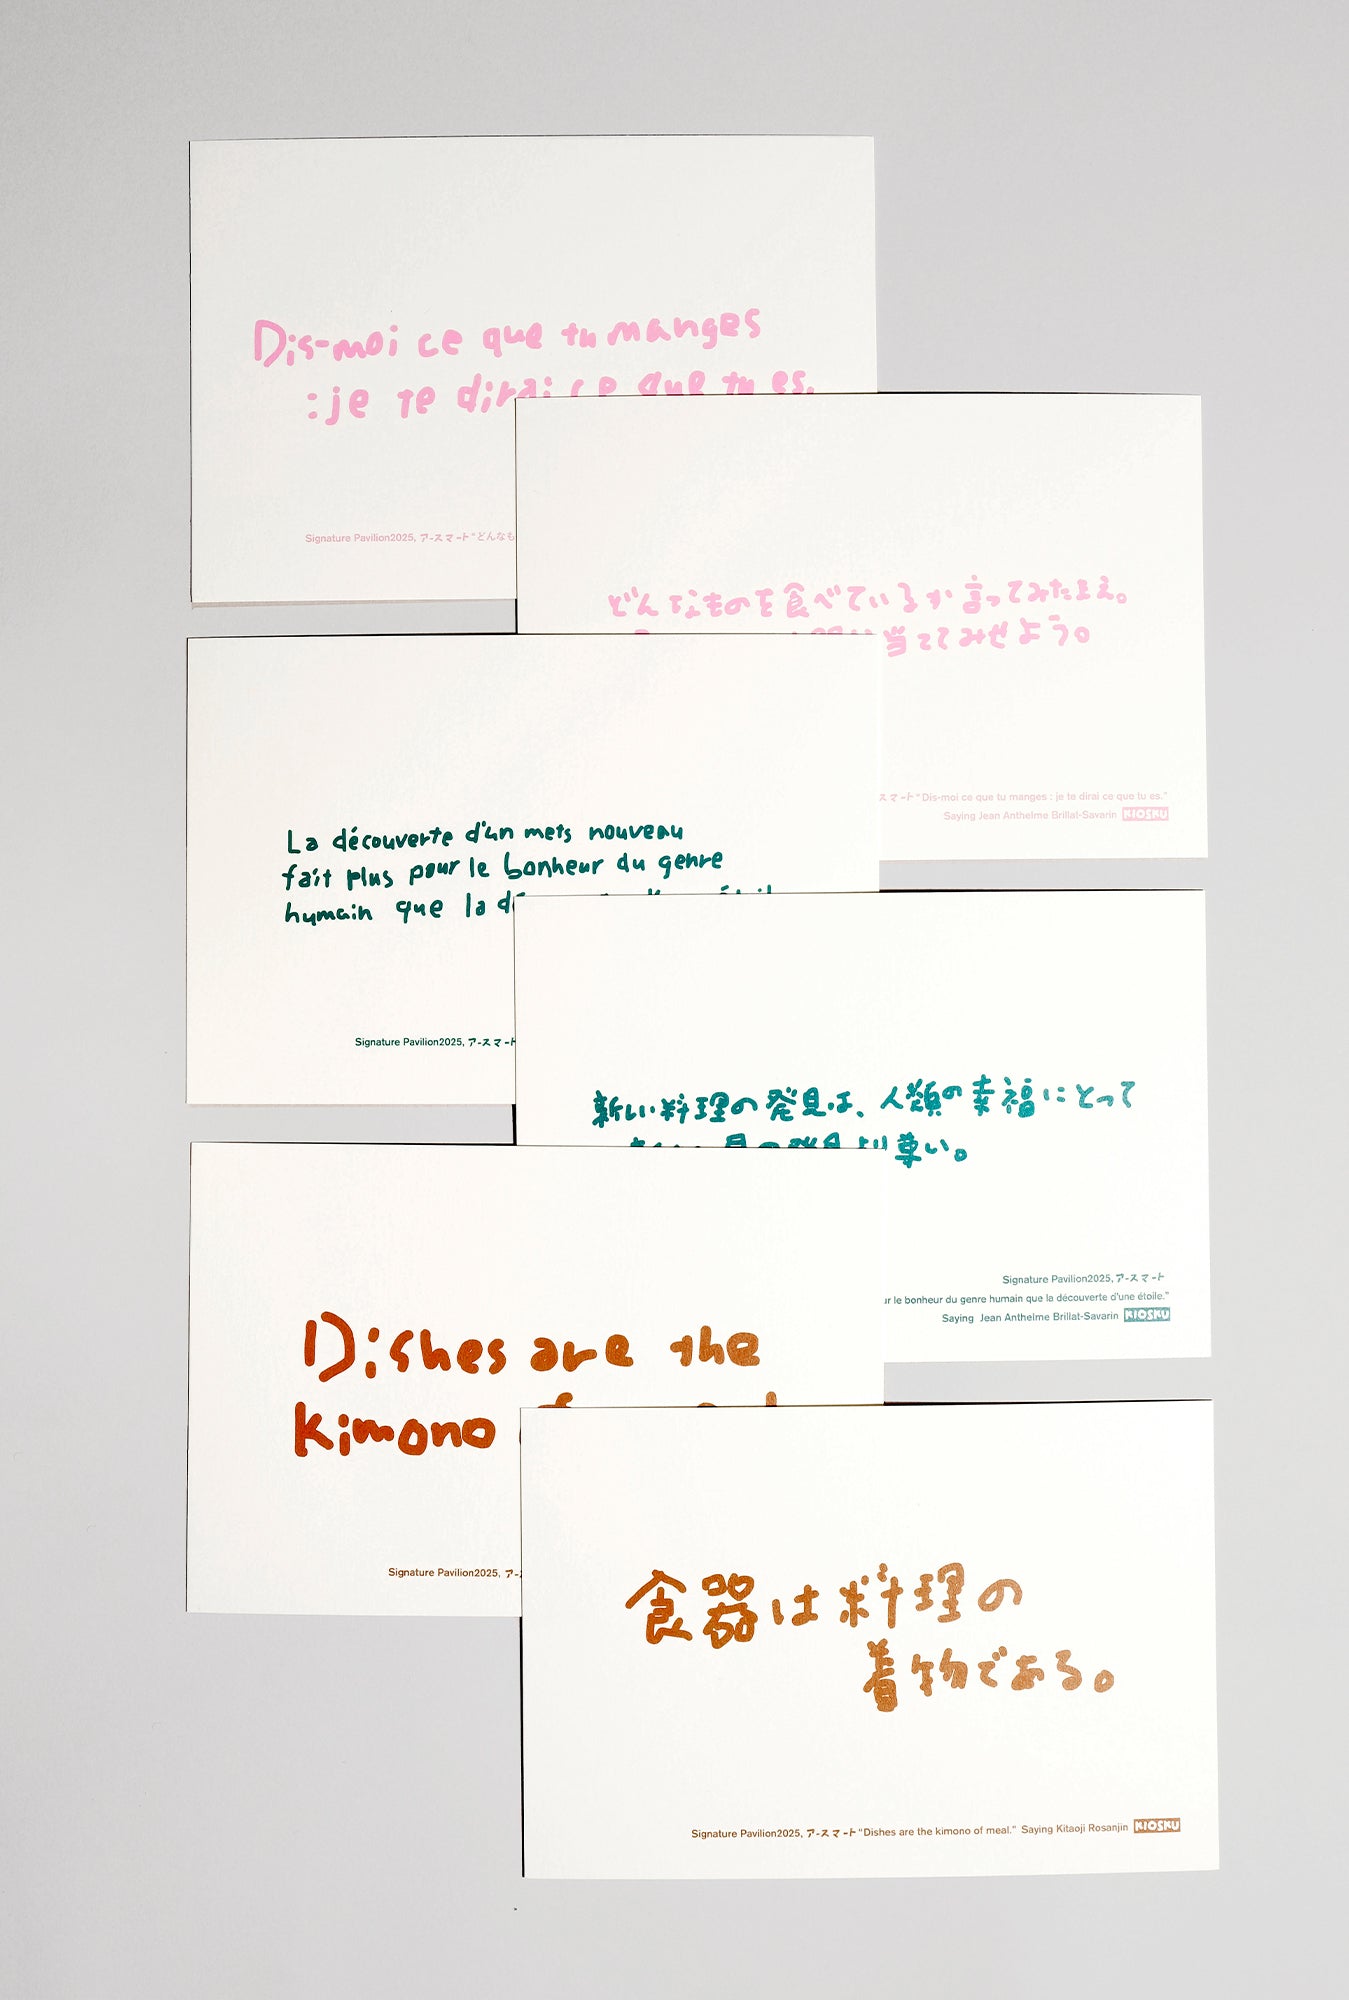 Dis-moi ce que tu manges
:je te dirai ce que tu es.
Signature Pavilion2025, アースマート “どんなも
どんなものを食べているか言ってみたまえ。
当ててみせよう。
スマート “Dis-moi ce que tu manges : je te dirai ce que tu es.”
Saying Jean Anthelme Brillat-Savarin KIOSKU
La découverte d'un mets nouveau
fait plus pour le bonheur du genre
humain que la dé
Signature Pavilion2025, アースマート
新しい料理の発見は、人類の幸福にとって
尊い。
Signature Pavilion2025, アースマート
ur le bonheur du genre humain que la découverte d'une étoile.”
Saying Jean Anthelme Brillat-Savarin KIOSKU
Dishes are the
kimono
Signature Pavilion2025, アース
食器は料理の
着物である。
Signature Pavilion2025, アースマート “Dishes are the kimono of meal.” Saying Kitaoji Rosanjin KIOSKU